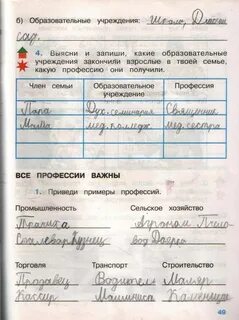 б) Образовательные учреждения: Школа, Детский
сад.
4. Выясни и запиши, какие образовательные
учреждения закончили взрослые в твоей семье,
какую профессию они получили.
Член семьи Образовательное учреждение Профессия
Папа Дух. семинария Священник
Мама мед. колледж мед. сестра
ВСЕ ПРОФЕССИИ ВАЖНЫ
1. Приведи примеры профессий.
Промышленность Сельское хозяйство
Ткачиха Агроном
Сталевар Кузнец вод Доярка
Торговля Транспорт Строительство
Продавец Водитель Маляр
Кассир Машинист Каменщик
49